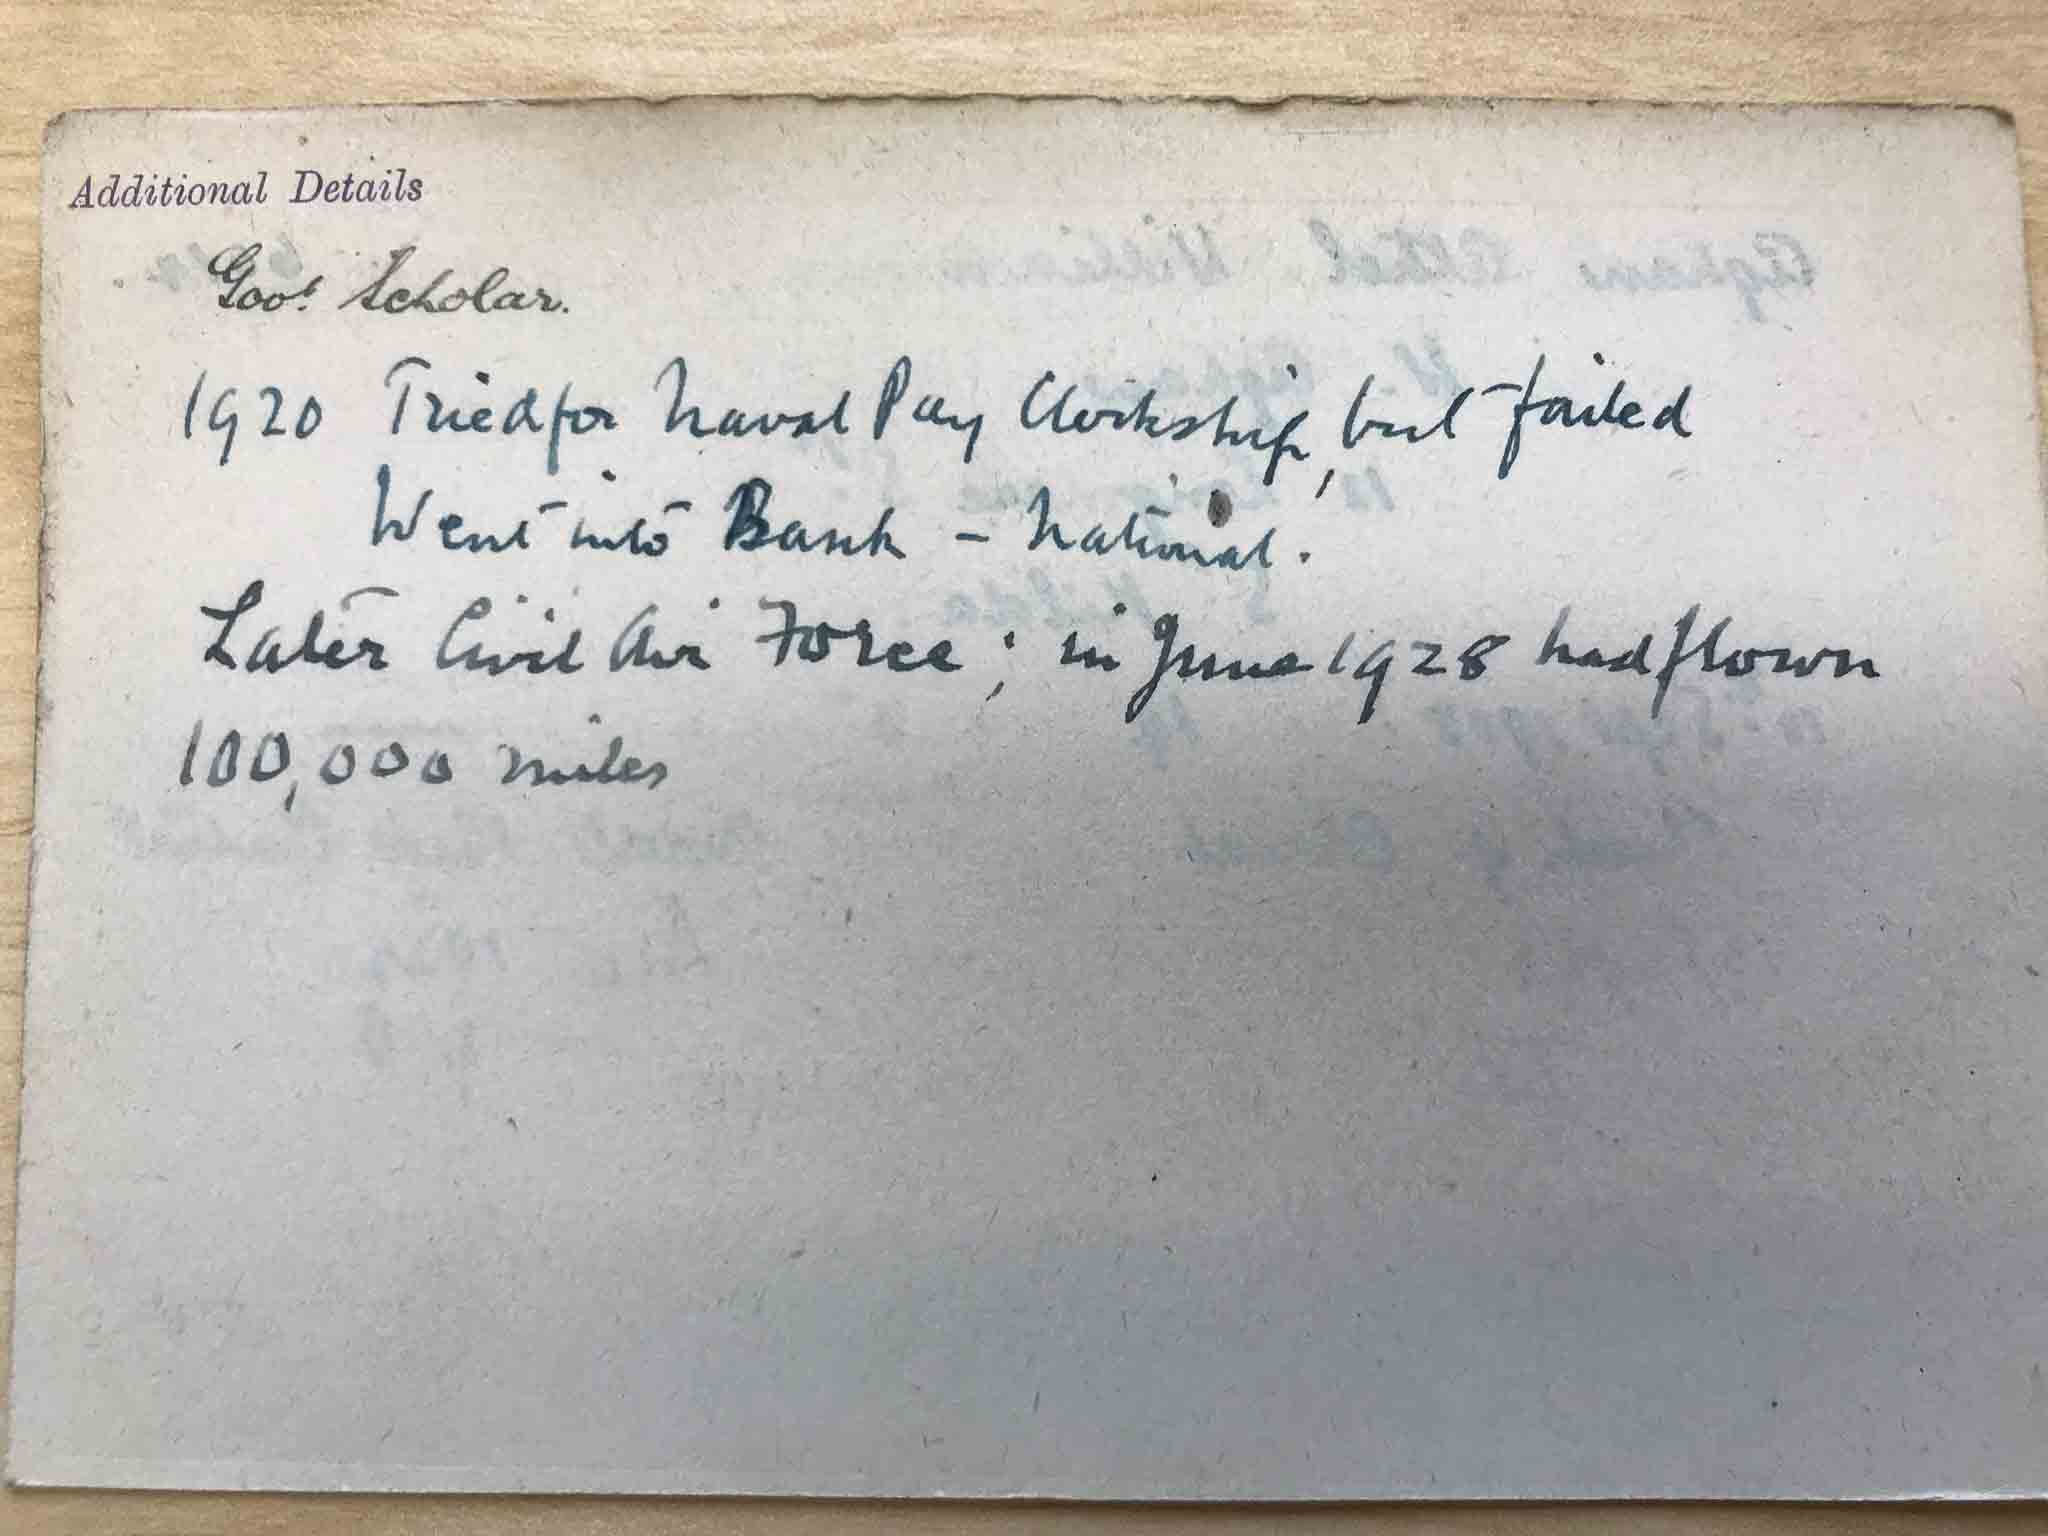 Additional Details
Govt. Scholar.
1920 Tried for Naval Pay Clerkship, but failed
Went into Bank - National.
Later Civil Air Force; in June 1928 had flown
100,000 miles